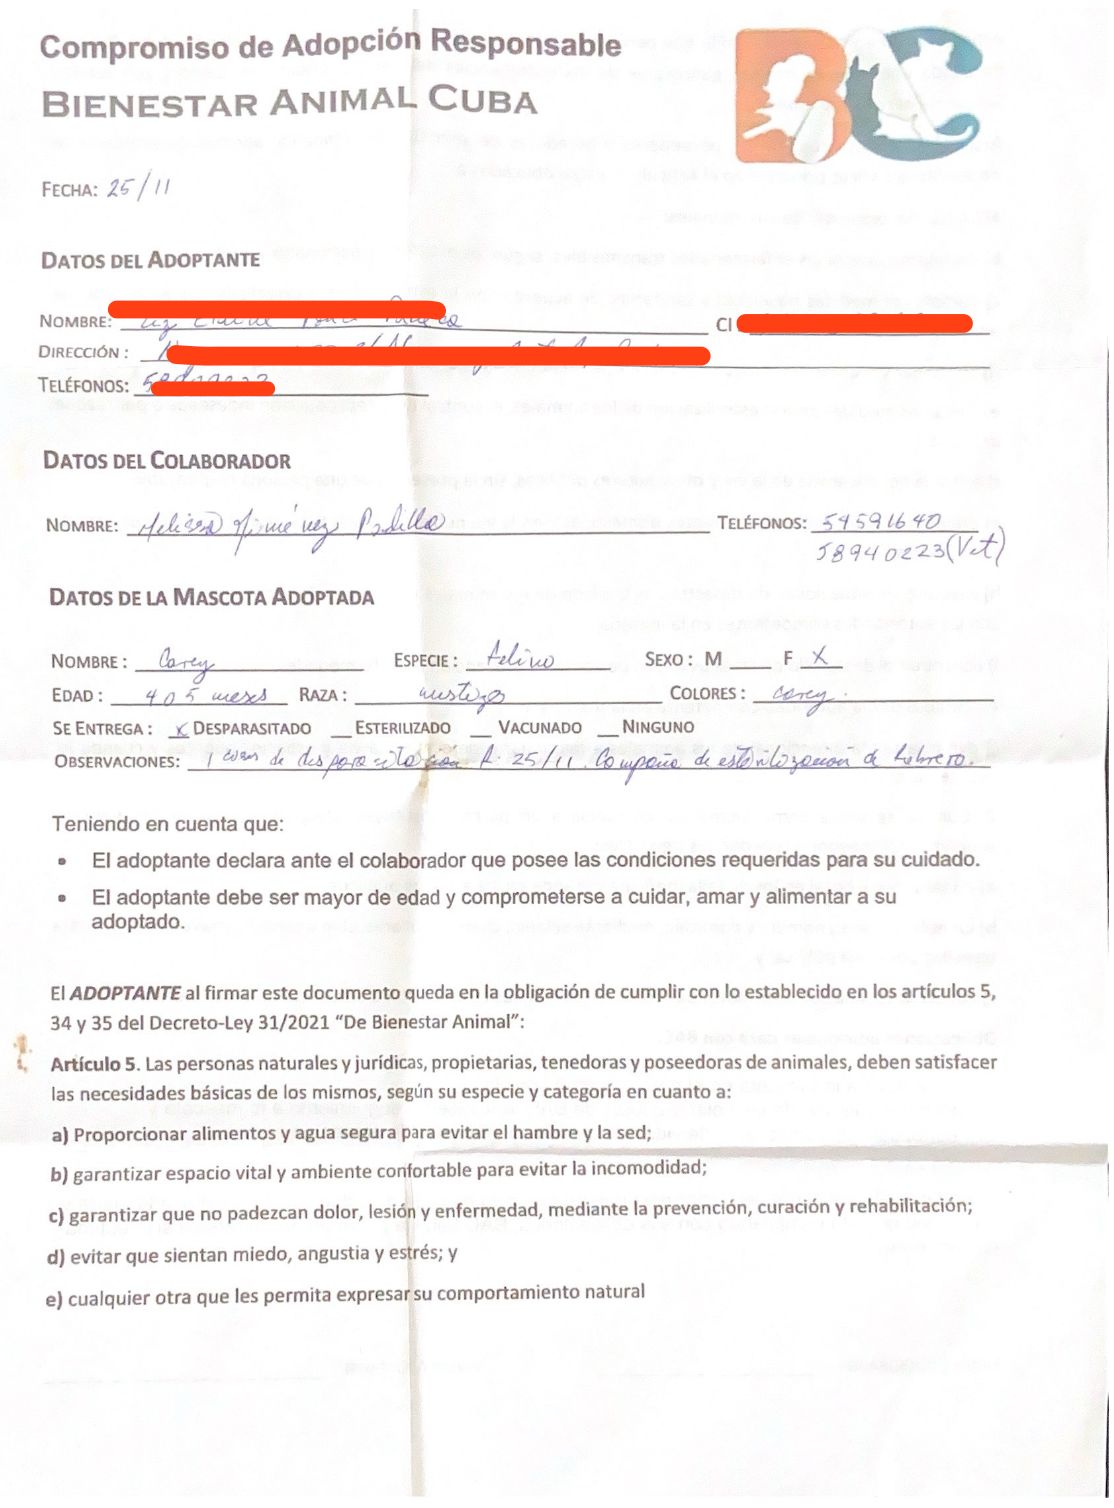 Compromiso de Adopción Responsable
BIENESTAR ANIMAL CUBA
BC
FECHA: 25/11
DATOS DEL ADOPTANTE
NOMBRE: CI
DIRECCIÓN :
TELÉFONOS:
DATOS DEL COLABORADOR
NOMBRE: Melissa Jiménez Padilla TELÉFONOS: 54591640
58940223 (Vet)
DATOS DE LA MASCOTA ADOPTADA
NOMBRE : Carey ESPECIE : felino SEXO : M F X
EDAD : 4 o 5 meses RAZA : mestizo COLORES : carey.
SE ENTREGA : X DESPARASITADO ESTERILIZADO VACUNADO NINGUNO
OBSERVACIONES: 1 de desparasitación 25/11. Campaña de esterilización de febrero.
Teniendo en cuenta que:
• El adoptante declara ante el colaborador que posee las condiciones requeridas para su cuidado.
• El adoptante debe ser mayor de edad y comprometerse a cuidar, amar y alimentar a su
adoptado.
El ADOPTANTE al firmar este documento queda en la obligación de cumplir con lo establecido en los artículos 5,
34 y 35 del Decreto-Ley 31/2021 “De Bienestar Animal”:
Artículo 5. Las personas naturales y jurídicas, propietarias, tenedoras y poseedoras de animales, deben satisfacer
las necesidades básicas de los mismos, según su especie y categoría en cuanto a:
a) Proporcionar alimentos y agua segura para evitar el hambre y la sed;
b) garantizar espacio vital y ambiente confortable para evitar la incomodidad;
c) garantizar que no padezcan dolor, lesión y enfermedad, mediante la prevención, curación y rehabilitación;
d) evitar que sientan miedo, angustia y estrés; y
e) cualquier otra que les permita expresar su comportamiento natural